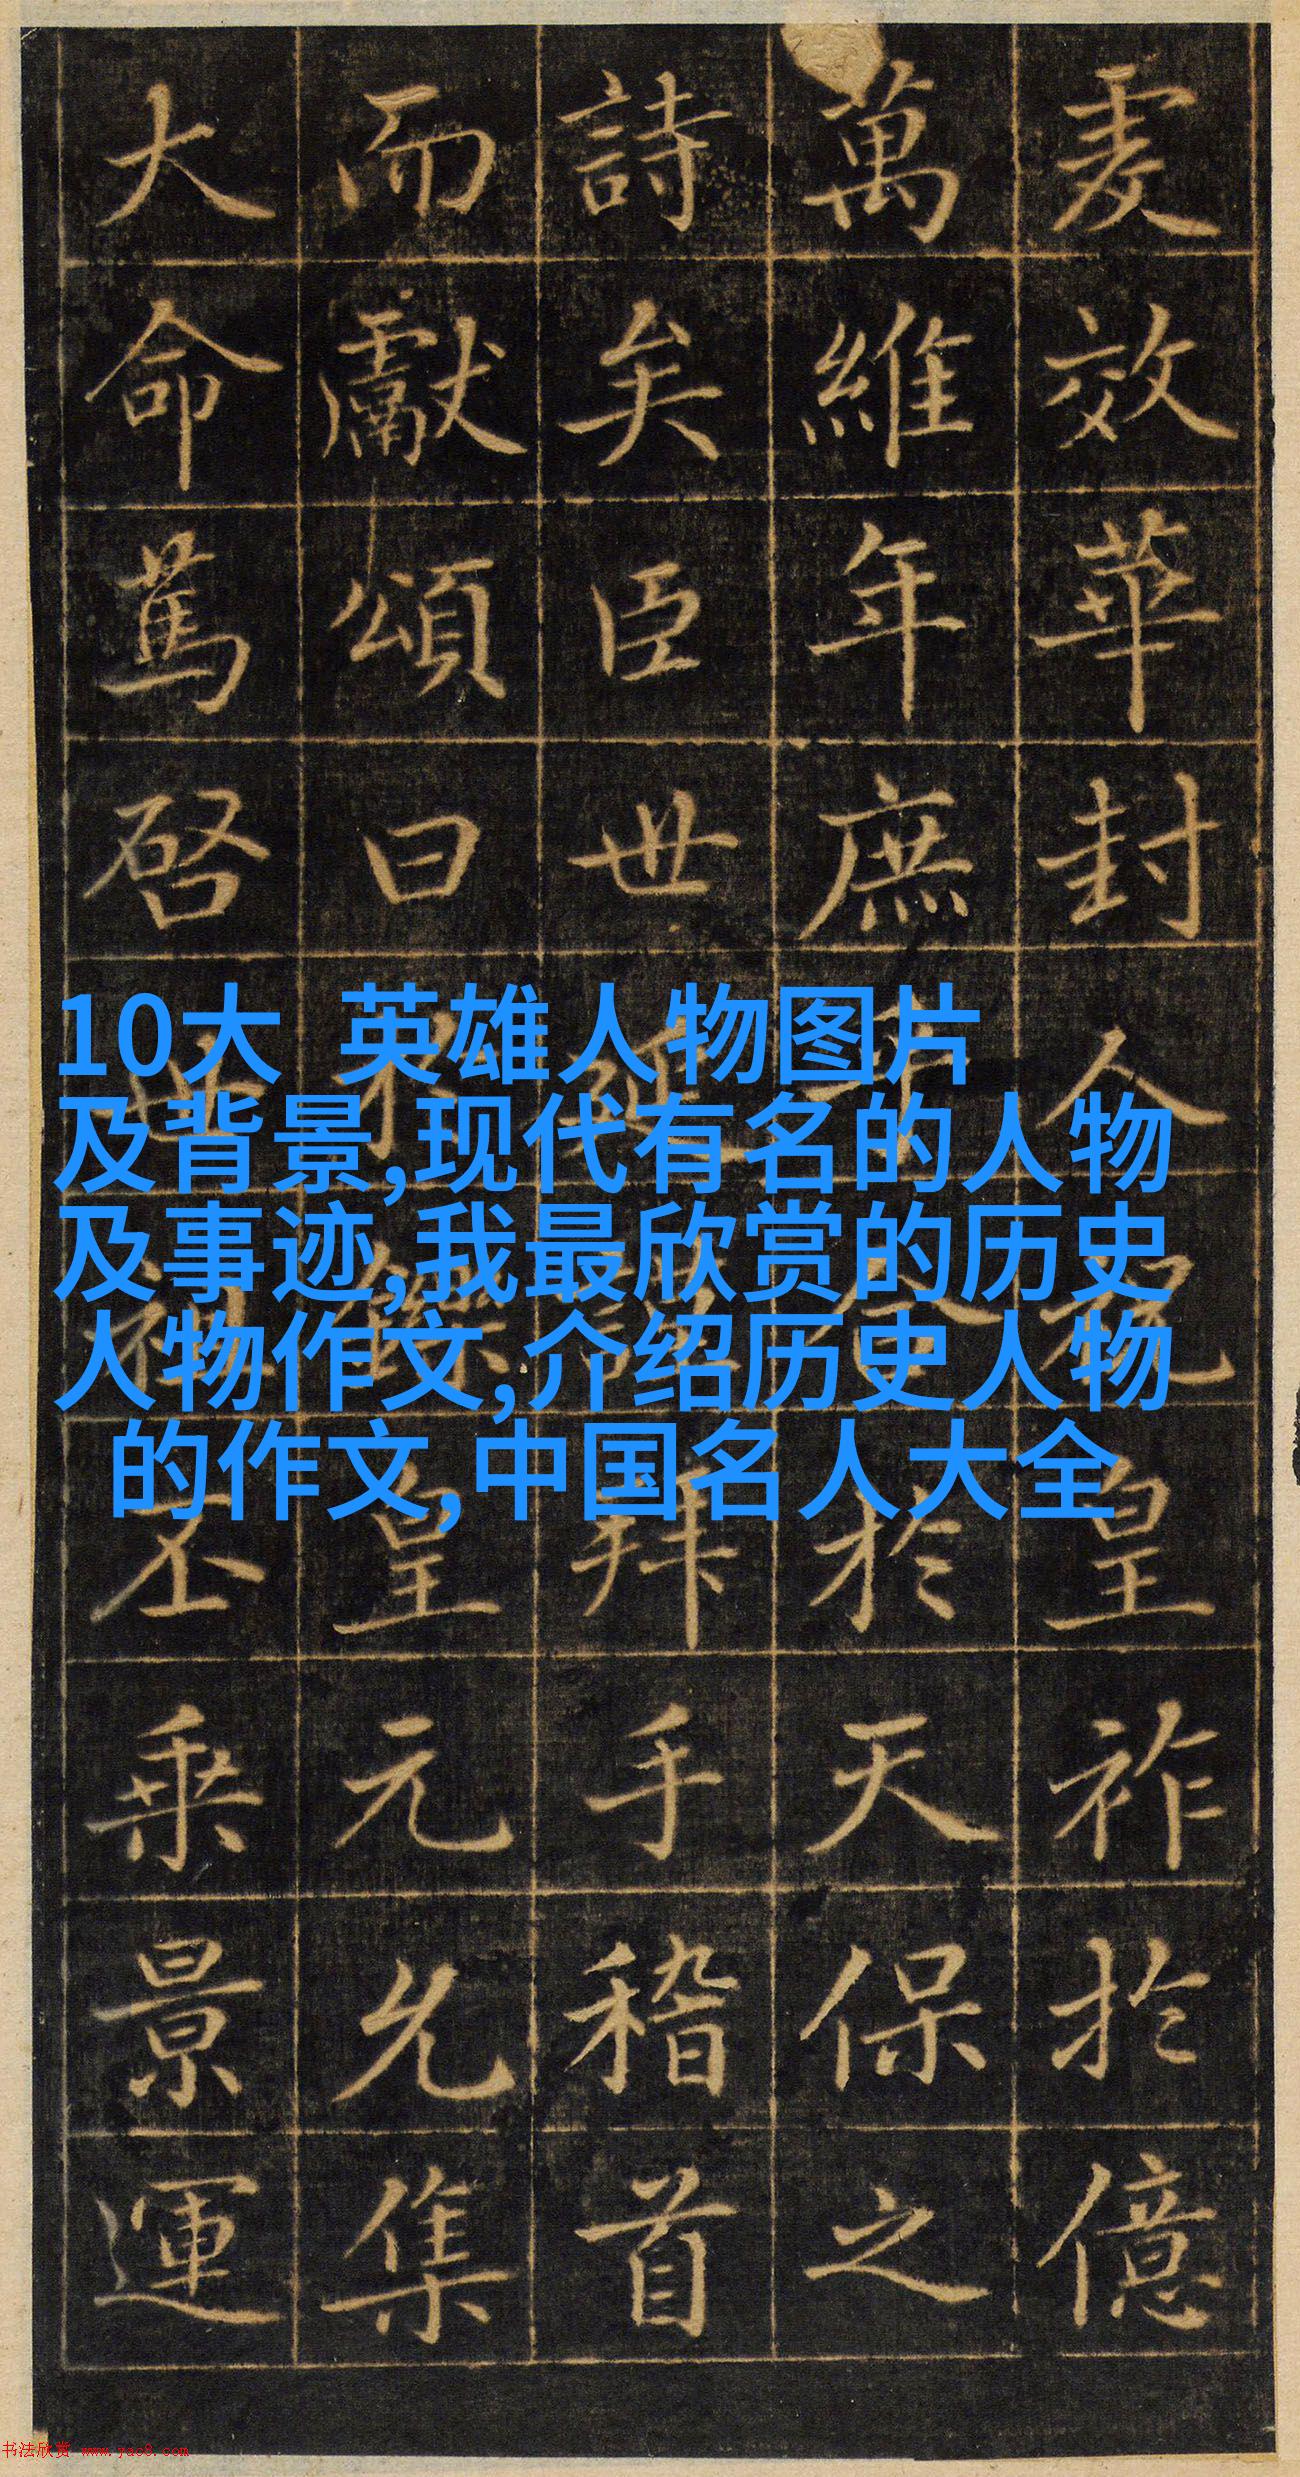 爰效華封人祝皇祚於億
萬維年庶乎合於天保之
詩矣臣世延謹拜手稽首
而獻頌曰於鑠皇元允集
大命篤啓世祖丕乘景運
10大 英雄人物图片
及背景,现代有名的人物
及事迹,我最欣赏的历史
人物作文,介绍历史人物
的作文,中国名人大全
书法欣赏 www.yac8.com